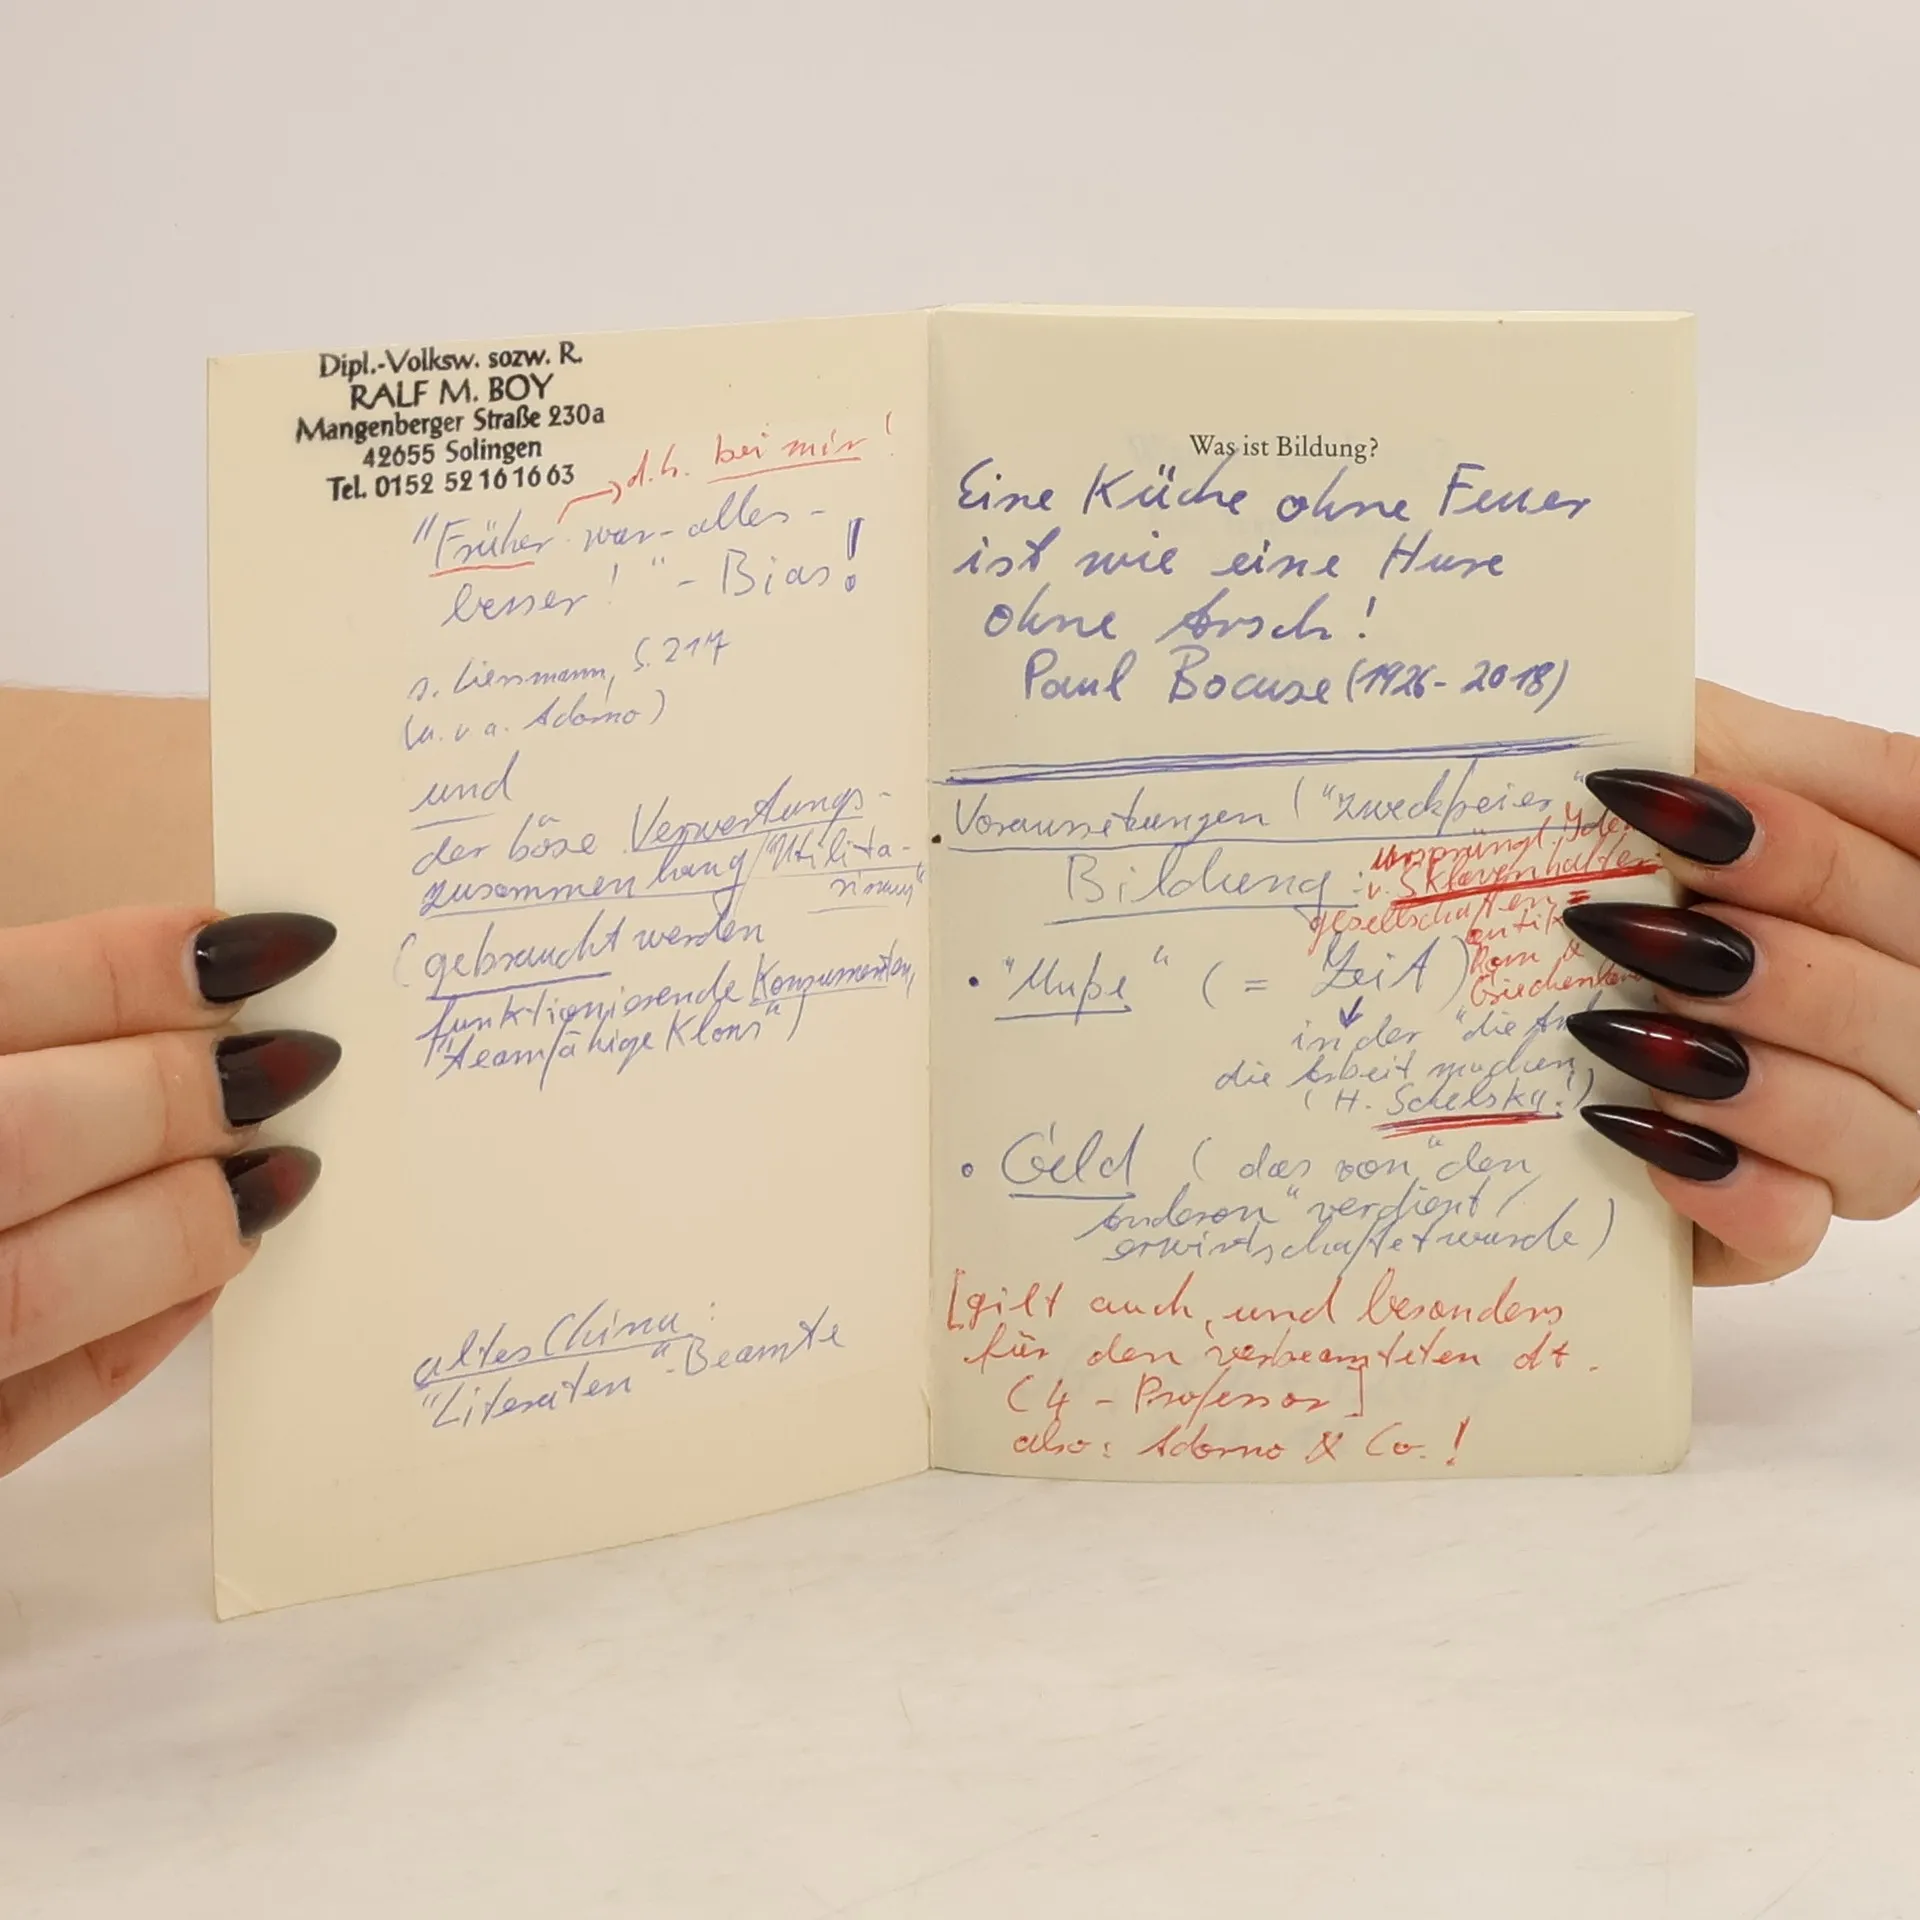 Dipl.-Volksw. sozw. R.
RALF M. BOY
Mangenberger Straße 230a
42655 Solingen
Tel. 0152 52 16 16 63
d.h. bei mir!
"Früher war alles -
besser!" - Bias!
s. Liessmann, S. 217
(u. v. a. Adorno)
und
der böse Verwertungs-
zusammenhang / "Utilita-
rismus"
(gebraucht werden
funktionierende Konsumenten,
"teamfähige Klons")
altes China:
"Literaten"-Beamte
Was ist Bildung?
Eine Küche ohne Feuer
ist wie eine Hure
ohne Arsch!
Paul Bocuse (1926-2018)
Voraussetzungen ("zweckfreier"
Bildung:
ursprüngl.
v. Sklavenhalter
gesellschaften
Rom &
• "Muße" (= Zeit)
in der "die
die Arbeit machen
(H. Schelsky!)
• Geld (das von "den
anderen" verdient /
erwirtschaftet wurde)
[gilt auch, und besonders
für den verbeamteten dt.
C4-Professor]
also: Adorno & Co.!